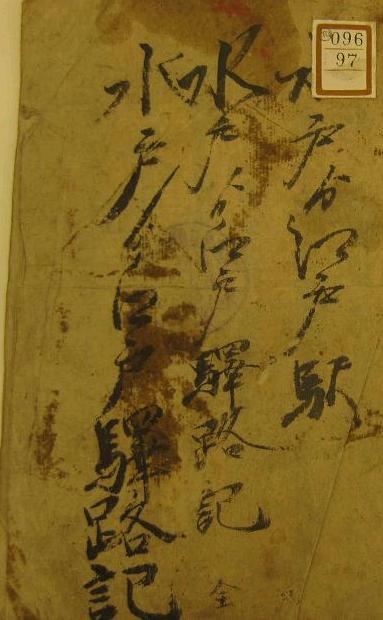 096
97
水戸ゟ江戸駅
水戸ゟ江戸驛路記
全
水戸ゟ江戸驛路記